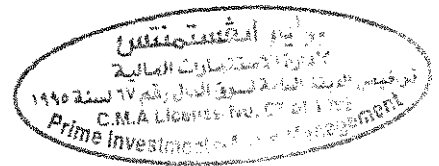 برايم انفستمنتس
لادارة الاستثمارات المالية
ترخيص الهيئة العامة لسوق المال رقم ٦٧ لسنة ١٩٩٥
C.M.A License No. 67 of 1995
Prime Investments Management